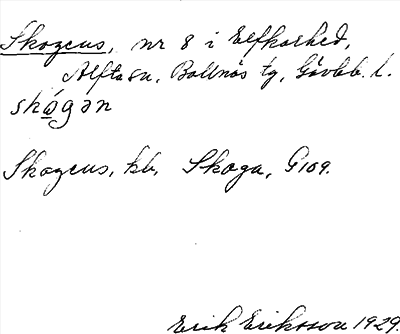 Skogens, nr 8 i Elfkarhed,
Alfta sn, Bollnäs tg, Gävleb. l.
skǫ́gən
Skogens, kb, Skoga, G 109.
Erik Eriksson 1929.